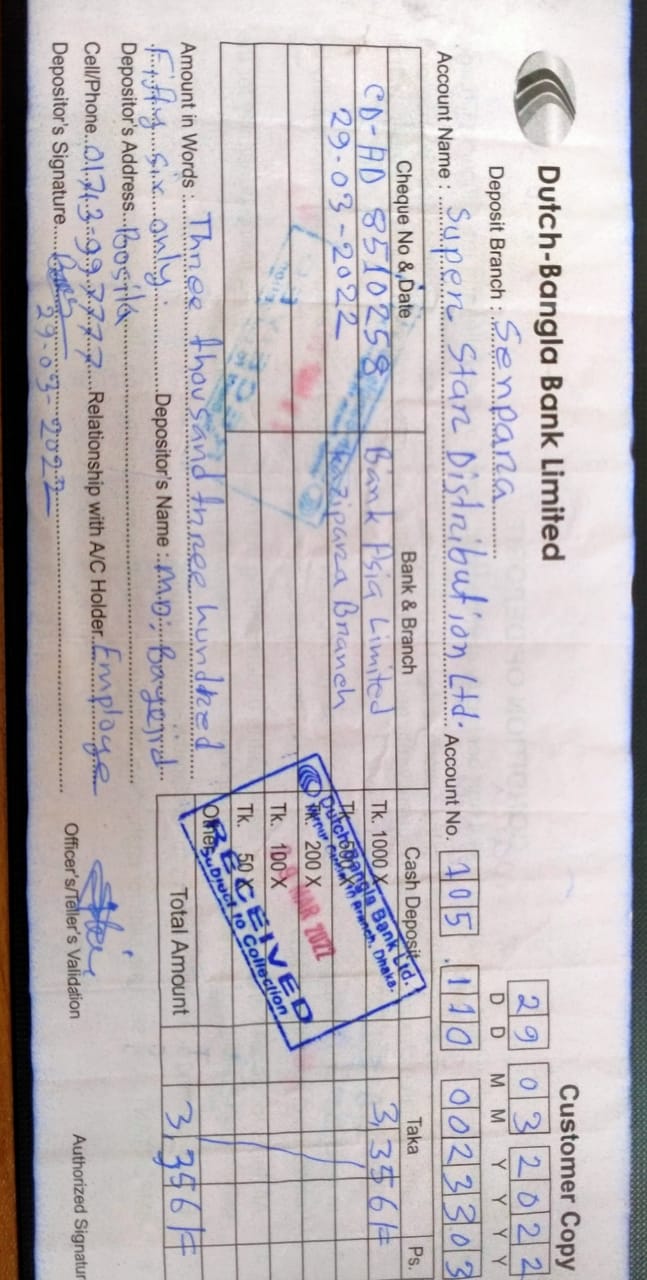 Dutch-Bangla Bank Limited
Customer Copy
Deposit Branch : Senpara
29 03 2022
D D M M Y Y Y Y
Account Name : Super Star Distribution Ltd. Account No. 105 . 110 0023303
Cheque No & Date Bank & Branch Cash Deposit Taka Ps.
CD-AD 8510258 Bank Asia Limited Tk. 1000 X 3,356/=
29-03-2022 Kazipara Branch Tk. 500 X
Tk. 200 X
Tk. 100 X
Tk. 50 X
Others
Total Amount 3,356/=
Dutch-Bangla Bank Ltd.
Branch, Dhaka.
9 MAR 2022
RECEIVED
Subject to Collection
Amount in Words : Three thousand three hundred
Fifty six only. Depositor's Name : MD; Bayejid
Depositor's Address Bosila
Cell/Phone 01713-997777 Relationship with A/C Holder Employe
Depositor's Signature
29-03-2022
Officer's/Teller's Validation
Authorized Signatur